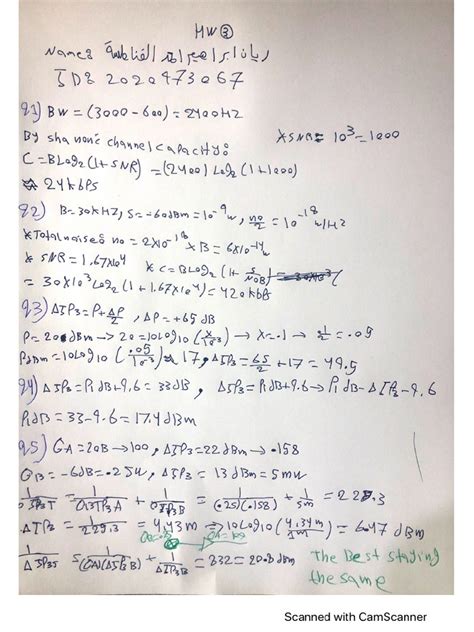 HW ③
Name: ريان ابراهيم
ID: 202047306 7
Q1) BW = (3000 - 600) = 2400 Hz
By shannon's channel capacity:
* SNR = 10^3 = 1000
C = B Log2 (1 + SNR) = (2400) Log2 (1 + 1000)
≈ 24 kbps
Q2) B = 30 kHz, S = -60 dBm = 10^-9 w, no/2 = 10^-18 w/Hz
* Total noise: no = 2x10^-18 x B = 6x10^-14 w
* SNR = 1.67x10^4 * C = B Log2 (1 + S/NoB)
= 30x10^3 Log2 (1 + 1.67x10^4) = 420 kbps
Q3) ΔIP3 = P + ΔP/2 , ΔP = +65 dB
P = 20 dBm -> 20 = 10 Log10 (x/10^-3) -> x = .1 -> .1/2 = .05
PdBm = 10 Log10 (.05/10^-3) ≈ 17, ΔIP3 = 65/2 + 17 = 49.5
Q4) ΔIP3 = P1dB + 9.6 = 33dB , ΔIP3 = P1dB + 9.6 -> P1dB = ΔIP3 - 9.6
P1dB = 33 - 9.6 = 17.4 dBm
Q5) GA = 20B -> 100, ΔIP3 = 22 dBm -> .158
GB = -6dB = .25w, ΔIP3 = 13 dBm = 5mw
= 1/(.25)(.158) + 1/5m = 225.3
ΔIP3 = 1/225.3 = 4.43m => 10 Log10 (4.34m/1m) = 6.47 dBm
= 232 = 20.8 dBm
The Best staying
the same
Scanned with CamScanner